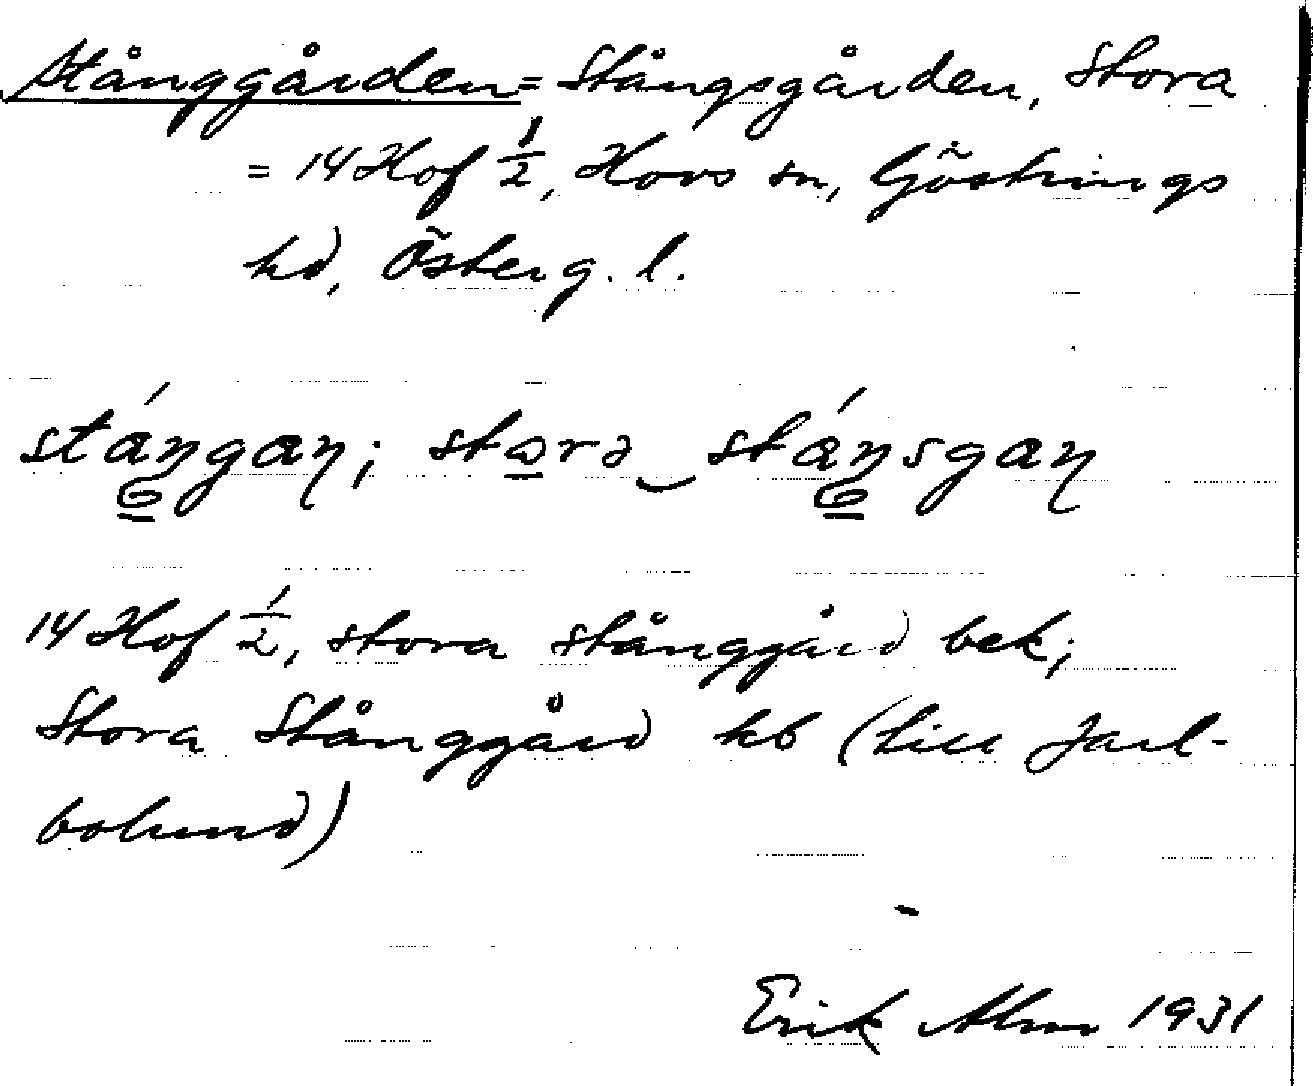 Stånggården = Stångsgården, Stora
= 14 Hof 1/2, Hovs sn, Göstrings
hd, Österg. l.
stáŋgaɳ; stɷrə‿stáŋsgaɳ
14 Hof 1/2, stora stånggård bek;
Stora Stånggård kb (till Jarl-
bolund)
Erik Alm 1931